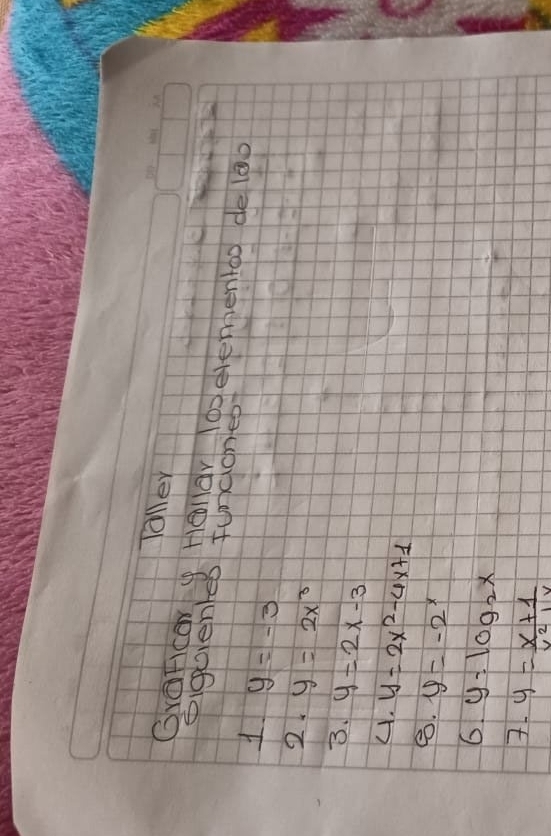 Taller
Graficar y Hallar los elementos de las
siguientes funciones
1. y = -3
2. y = 2x³
3. y = 2x-3
4. y = 2x²-4x+1
5. y = -2ˣ
6. y = log₂x
7. y = x+1